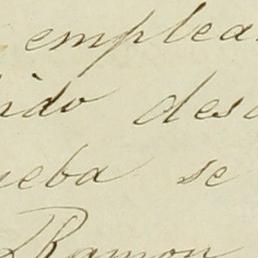 emplea
ido desd
ueba se
Ramon